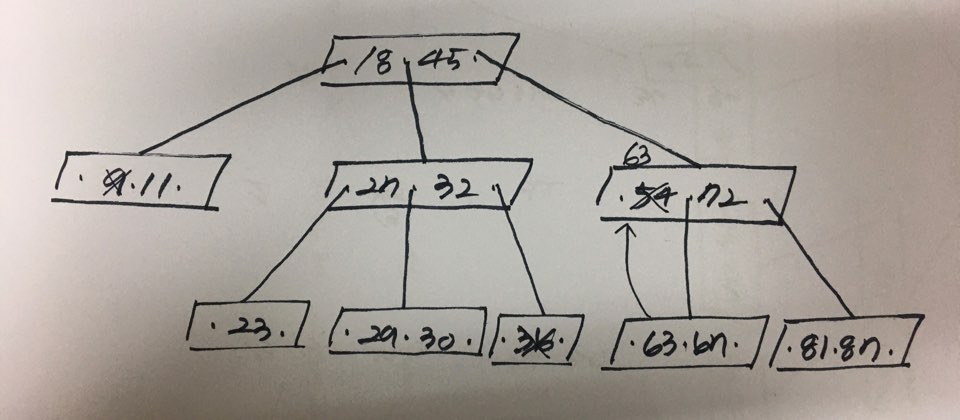 . 18 . 45 .
63
. 11 .
. 27 . 32 .
. 54 . 72 .
. 23 .
. 29 . 30 .
. 63 . 67 .
. 81 . 87 .